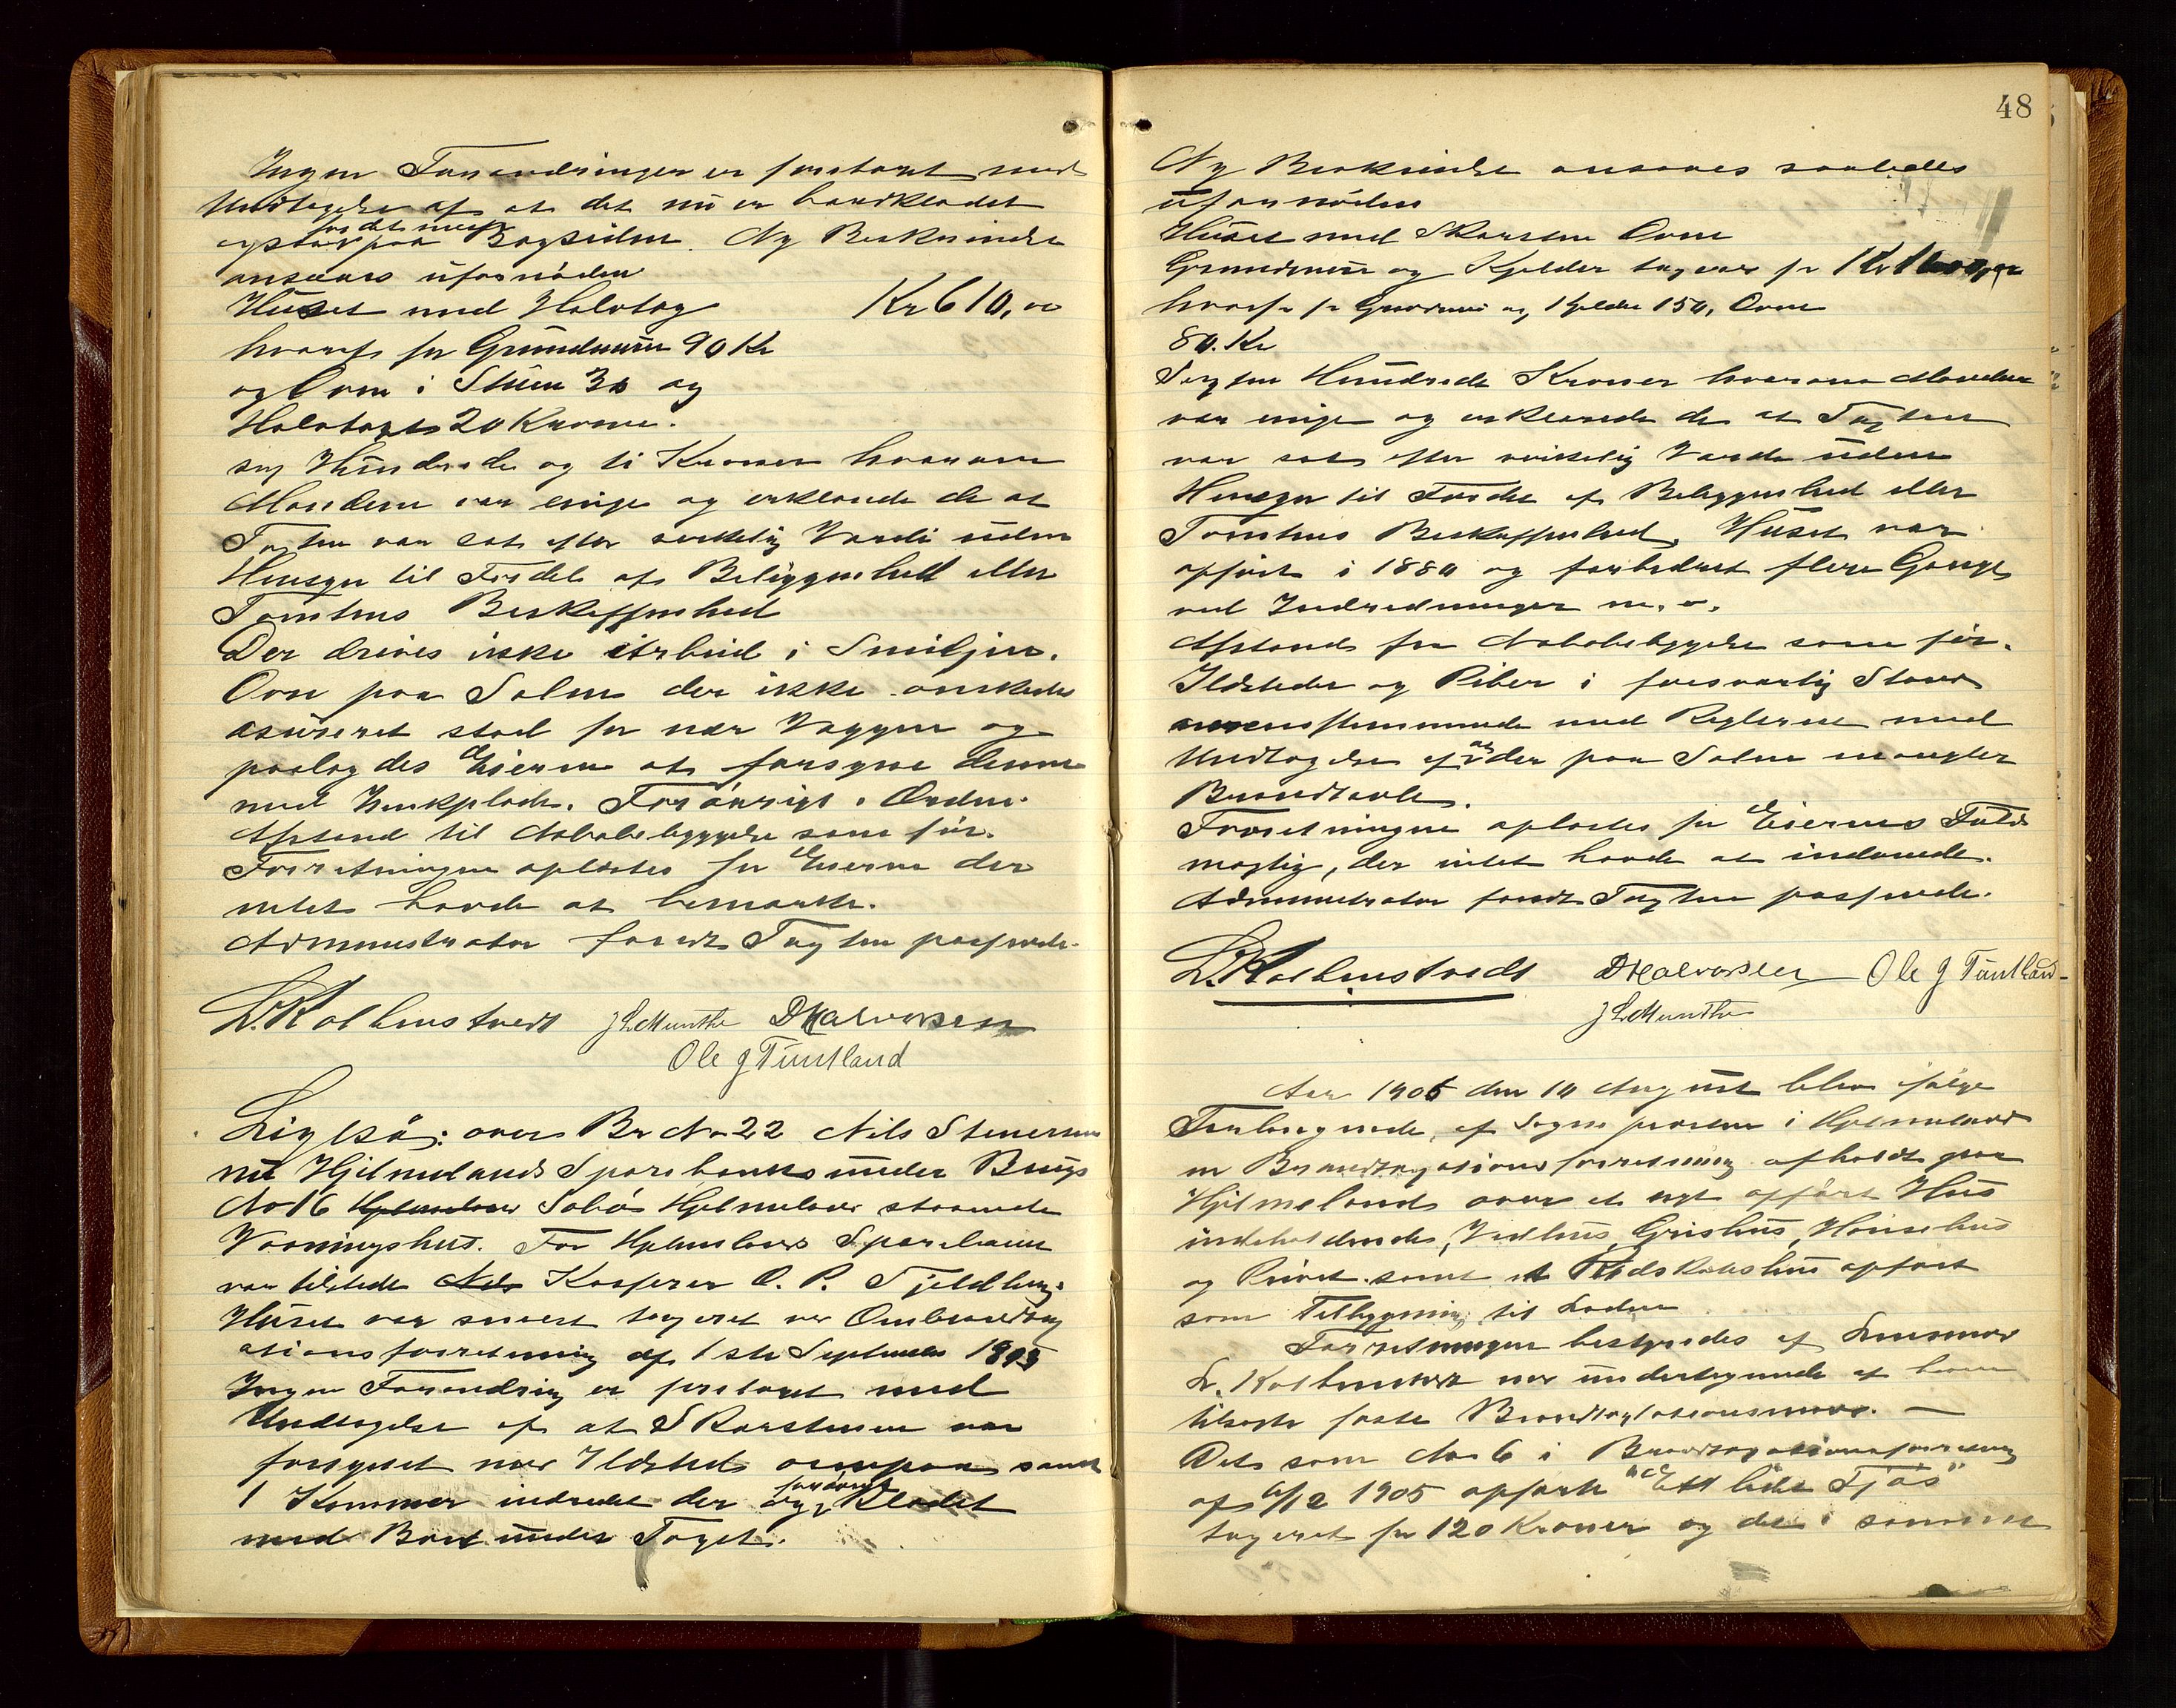 Ingen Forandringer er foretaget med
Undtagelse af at det nu er bordklædet
for det meste
ogsaa paa Bagsiden. Ny Beskrivelse
ansaaes ufornøden
Huset med Halvtag Kr 610,00
hvoraf for Grundmur 90 Kr
og Ovn i Stuen 30 og
Halvtaget 20 Kroner.
sex Hundrede og ti Kroner hvorom
Mændene var enige og erklærede de at
Taxten var sat efter virkelig Værdi uden
Hensyn til Fordel af Beliggenhed eller
Tomtens Beskaffenhed
Der drives ikke Arbeid i Smidjen.
Ovn paa Salen der ikke ønskedes
assureret stod for nær Væggen og
paalagdes Eieren at forsyne denne
med Jernplade. Forøvrigt i Orden.
Afstand til Nabobebyggelse som før.
Forretningen oplæstes for Eieren der
intet havde at bemærke.
Administrator fandt Taxten passende.
L. Kolbenstvedt J L Munthe D Halvorsen
Ole G Tuntland
Ligesaa: over Br No 22 Nils Steinersen
nu Hjelmelands Sparebanks under Brugs
No 16 Hjelmeland Sabø Hjelmeland staaende
Vaaningshus. For Hjelmelands Sparebank
var tilstede Nils Kasserer O. P. Fjeldberg.
Huset var senest taxeret ved Ombrandtax
ationsforretning af 1ste September 1893
Ingen Forandring er foretaget med
Undtagelse af at Skorstenen var
forsynet med Ildsted ovenpaa samt
1 Kammer indredet der forøvrigt
og Klædet
med Bord under Taget.
48
Ny Beskrivelse ansaaes saaledes
ufornøden
Huset med Skorsten Ovne
Grundmur og Kjelder taxeres for Kr
hvoraf for Grundmur og Kjelder 150, Ovne
80. Kr
Hundrede Kroner hvorom Mændene
var enige og erklærede de at Taxten
var sat efter virkelig Værdi uden
Hensyn til Fordel af Beliggenhed eller
Tomtens Beskaffenhed. Huset var
opført i 1880 og forbedret flere Gange
ved Indredninger m. v.
Afstand fra Nabobebyggelse som før.
Ildsteder og Piber i forsvarlig Stand
overensstemmende med Reglerne med
Undtagelse af at der paa Salen mangler
Brandtavle.
Forretningen oplæstes for Eierens Fuld
mægtig, der intet havde at indvende.
Administrator fandt Taxten passende.
L. Kolbenstvedt D Halvorsen Ole G Tuntland
J L Munthe
Aar 1906 den 10 August blev ifølge
Forlangende af Sognepræsten i Hjelmeland
en Brandtaxationsforretning afholdt paa
Hjelmeland over et nyt opført Hus
indeholdende, Vedhus, Grishus, Hønsehus
og Privet samt et Redskabshus opført
som Tilbygning til Laden
Forretningen bestyredes af Lensmand
L. Kolbenstvedt med undertegnede af ham
tilsagte faste Brandtaxtationsmænd. —
Det som No 6 i Brandtaxationsforretning
af 6/12 1905 opførte "Et lidet Fjøs"
taxeret for 120 Kroner og det i samme